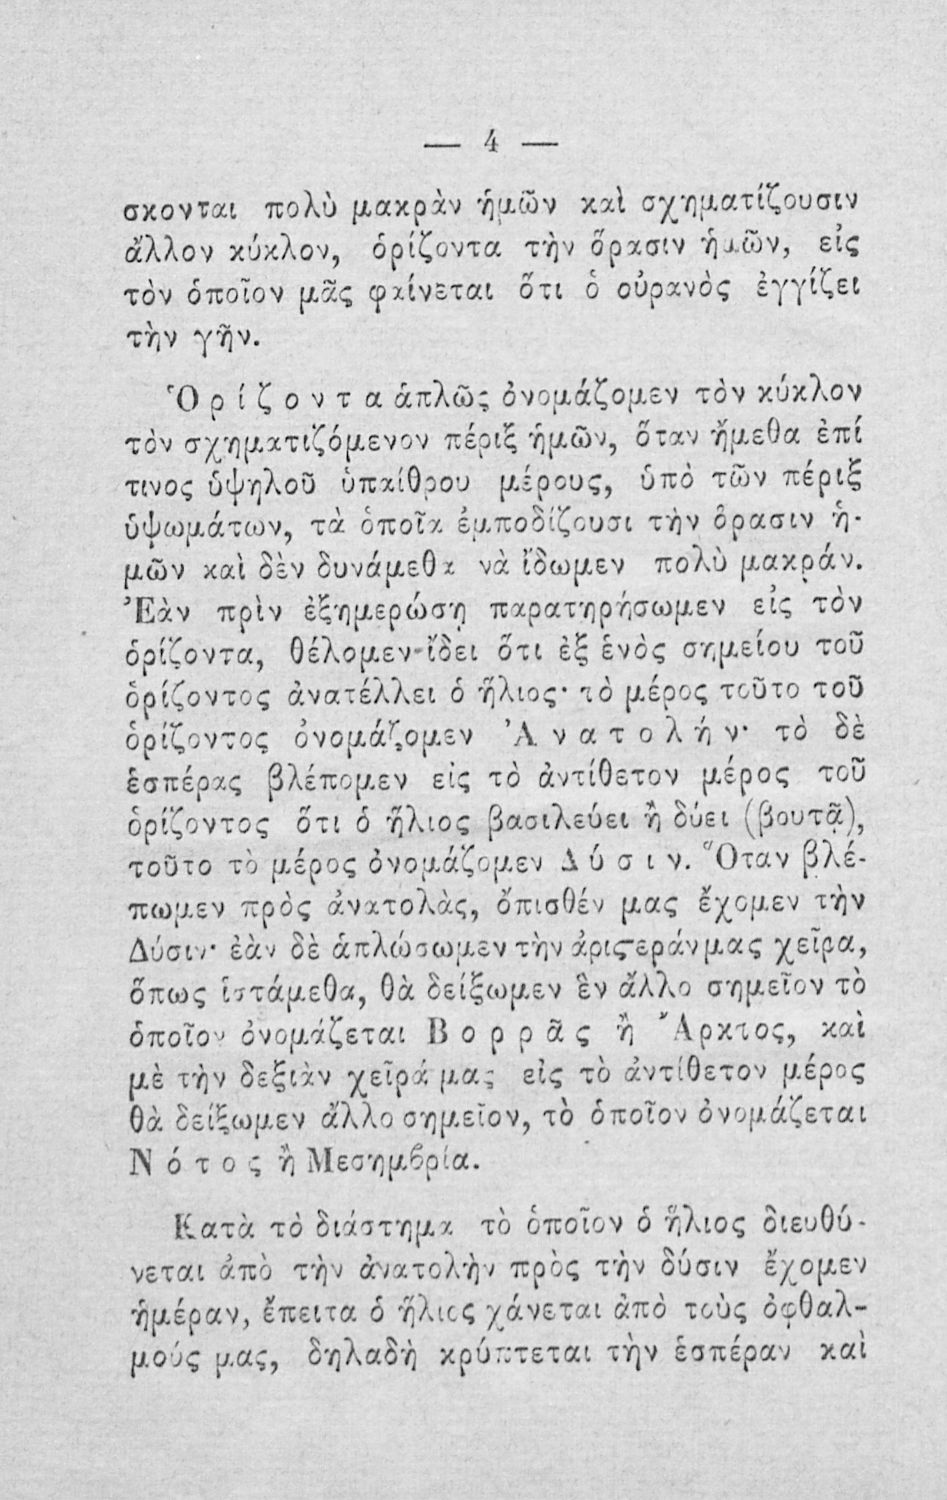 — 4 —
σκονται πολὺ μακρὰν ἡμῶν καὶ σχηματίζουσιν
ἄλλον κύκλον, ὁρίζοντα τὴν ὅρασιν ἡμῶν, εἰς
τὸν ὁποῖον μᾶς φαίνεται ὅτι ὁ οὐρανὸς ἐγγίζει
τὴν γῆν.
Ὁ ρ ί ζ ο ν τ α ἁπλῶς ὀνομάζομεν τὸν κύκλον
τὸν σχηματιζόμενον πέριξ ἡμῶν, ὅταν ἤμεθα ἐπί
τινος ὑψηλοῦ ὑπαίθρου μέρους, ὑπὸ τῶν πέριξ
ὑψωμάτων, τὰ ὁποῖα ἐμποδίζουσι τὴν ὅρασιν ἡ-
μῶν καὶ δὲν δυνάμεθα νὰ ἴδωμεν πολὺ μακράν.
Ἐὰν πρὶν ἐξημερώσῃ παρατηρήσωμεν εἰς τὸν
ὁρίζοντα, θέλομεν ἴδει ὅτι ἐξ ἑνὸς σημείου τοῦ
ὁρίζοντος ἀνατέλλει ὁ ἥλιος· τὸ μέρος τοῦτο τοῦ
ὁρίζοντος ὀνομάζομεν Ἀ ν α τ ο λ ή ν· τὸ δὲ
ἑσπέρας βλέπομεν εἰς τὸ ἀντίθετον μέρος τοῦ
ὁρίζοντος ὅτι ὁ ἥλιος βασιλεύει ἢ δύει (βουτᾷ),
τοῦτο τὸ μέρος ὀνομάζομεν Δ ύ σ ι ν. Ὅταν βλέ-
πωμεν πρὸς ἀνατολὰς, ὄπισθέν μας ἔχομεν τὴν
Δύσιν· ἐὰν δὲ ἁπλώσωμεν τὴν ἀριϛεράν μας χεῖρα,
ὅπως ἱστάμεθα, θὰ δείξωμεν ἓν ἄλλο σημεῖον τὸ
ὁποῖον ὀνομάζεται Β ο ρ ρ ᾶ ς ἢ Ἄρκτος, καὶ
μὲ τὴν δεξιὰν χεῖρά μας εἰς τὸ ἀντίθετον μέρος
θὰ δείξωμεν ἄλλο σημεῖον, τὸ ὁποῖον ὀνομάζεται
Ν ό τ ο ς ἢ Μεσημβρία.
Κατὰ τὸ διάστημα τὸ ὁποῖον ὁ ἥλιος διευθύ-
νεται ἀπὸ τὴν ἀνατολὴν πρὸς τὴν δύσιν ἔχομεν
ἡμέραν, ἔπειτα ὁ ἥλιος χάνεται ἀπὸ τοὺς ὀφθαλ-
μούς μας, δηλαδὴ κρύπτεται τὴν ἑσπέραν καὶ